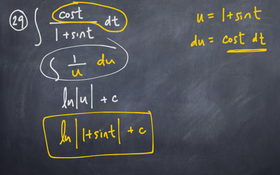 29 ∫ cost dt / 1+sint
u = 1+sint
du = cost dt
∫ 1/u du
ln|u| + c
ln|1+sint| + c